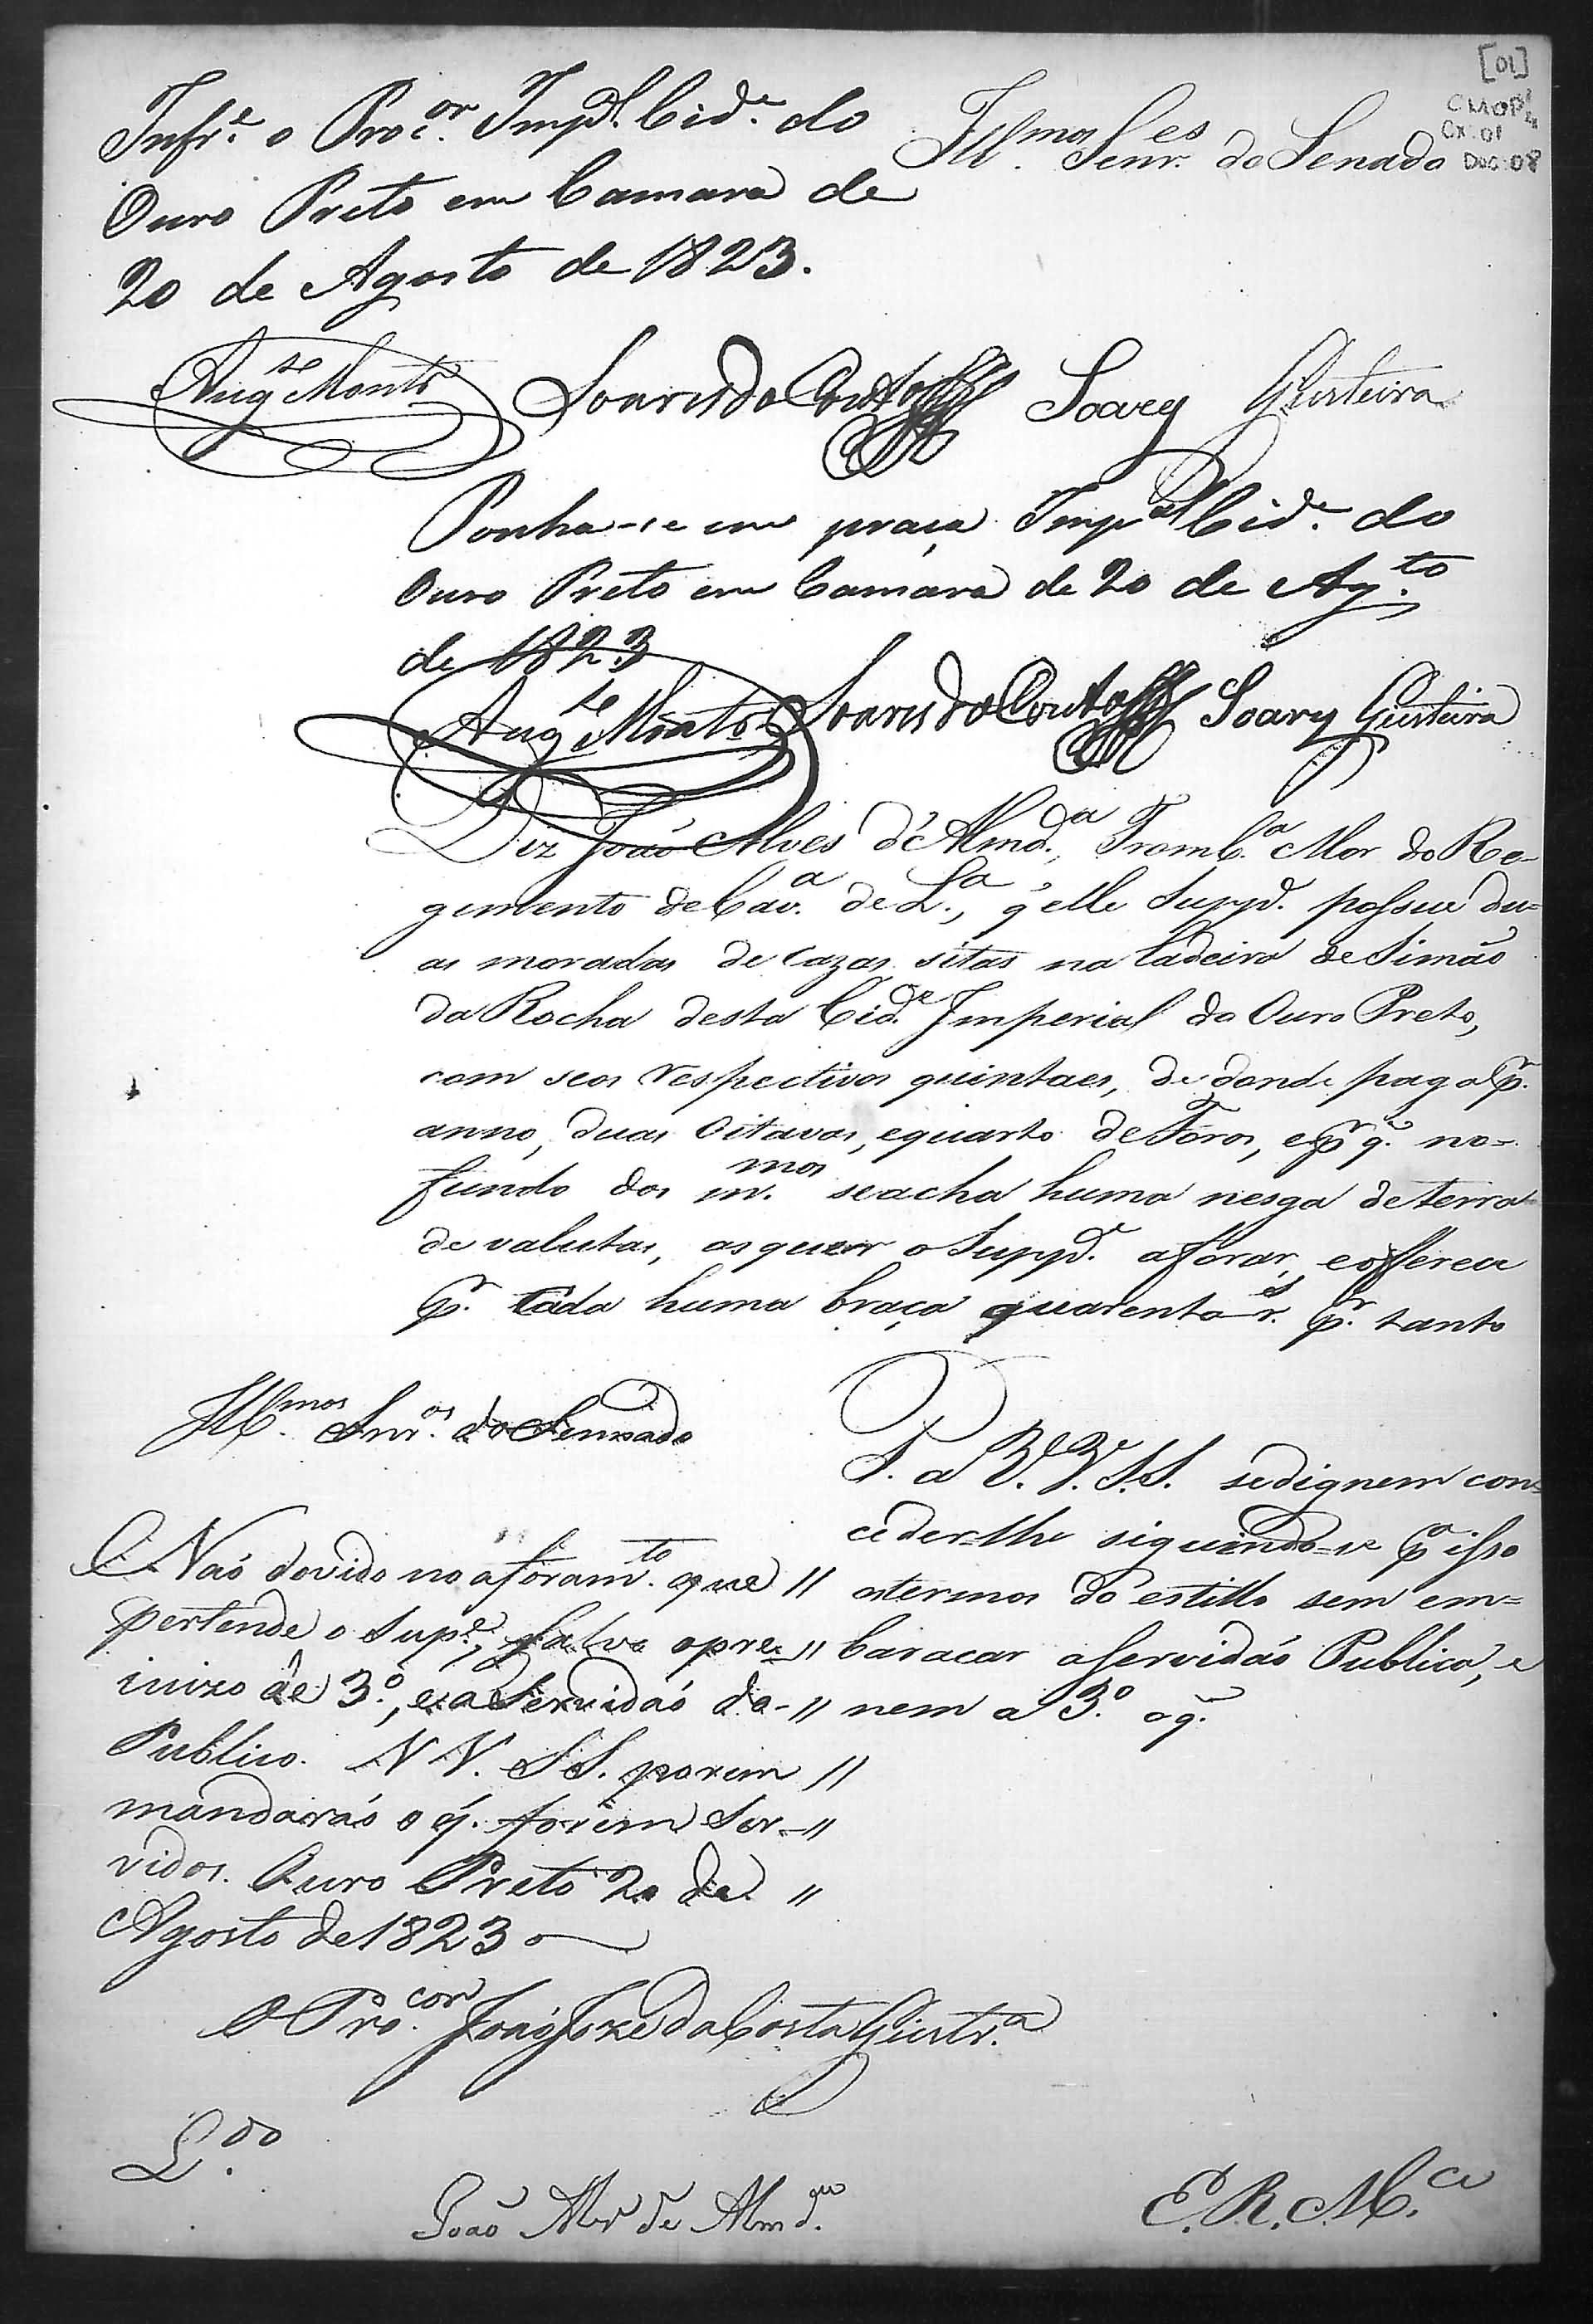 [01]
CMOP
Cx. 01
Doc. 08
Infr.e o Proc.or Imp.l Cid.e do
Ouro Preto em Camara de
20 de Agosto de 1823.
Ill.mos Senr.es do Senado
Aug.to Mont.o Soares do Couto Soares Giesteira
Ponha-se em praça Imp.al Cid.e do
Ouro Preto em Camara de 20 de Ag.to
de 1823
Aug.to Mont.o Soares do Couto Soares Giesteira
Diz João Alves d'Almd.a, Tromb.a Mor do Re-
gimento de Cav.a de L.a, q̃ elle Supp.e possue du=
as moradas de cazas sitas na Ladeira de Simão
da Rocha desta Cid.e Imperial do Ouro Preto,
com seos respectivos quintaes, de donde paga p.r
anno, duas oitavas, e quarto de Foros, e p.r q.' no-
fundo dos m.mos se acha huma nesga de terra
devalutas, as quer o Supp.e aforar, e offerece
p.r cada huma braça quarenta r.s p.r tanto
P. a V.V. S.S. se dignem con=
ceder-lhe siguindo-se p.a isso
os termos do estillo sem em=
baraçar a servidaó Publica, e
nem a 3.o o q.'
Ill.mos Snr.es do Sennado
Naó dovido no aforam.to que //
pertende o Sup.e, salvo o pre- //
juizo de 3.o, e a Servidaó do- //
Publico. V V. S S. porem //
mandaraó o q̃. forem Ser- //
vidos. Ouro Preto 20 de //
Agosto de 1823
O Pro.cor João Joze da Costa Giestr.a
L.do
João Alv' de Almd.a
E. R. M.ce